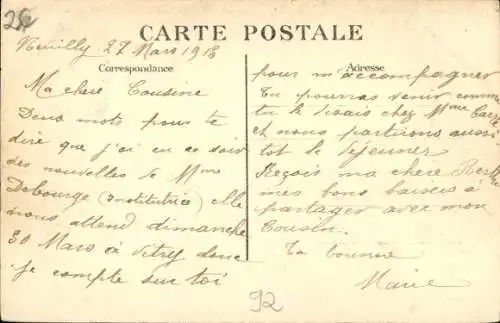 26
CARTE POSTALE
Neuilly 27 Mars 1918
Correspondance
Ma chere Cousine
Deux mots pour te
dire que j'ai eu ce soir
des nouvelles de Mme
Debourge (institutrice) elle
nous attend dimanche
30 Mars à Vitry donc
je compte sur toi
Adresse
pour m'accompagner
Tu pourras venir comme
tu le disais chez Mme
et nous partirons aussi
tot le déjeuner
Reçois ma chere
mes bons baisers à
partager avec mon
Cousin.
Ta cousine
Marie
92